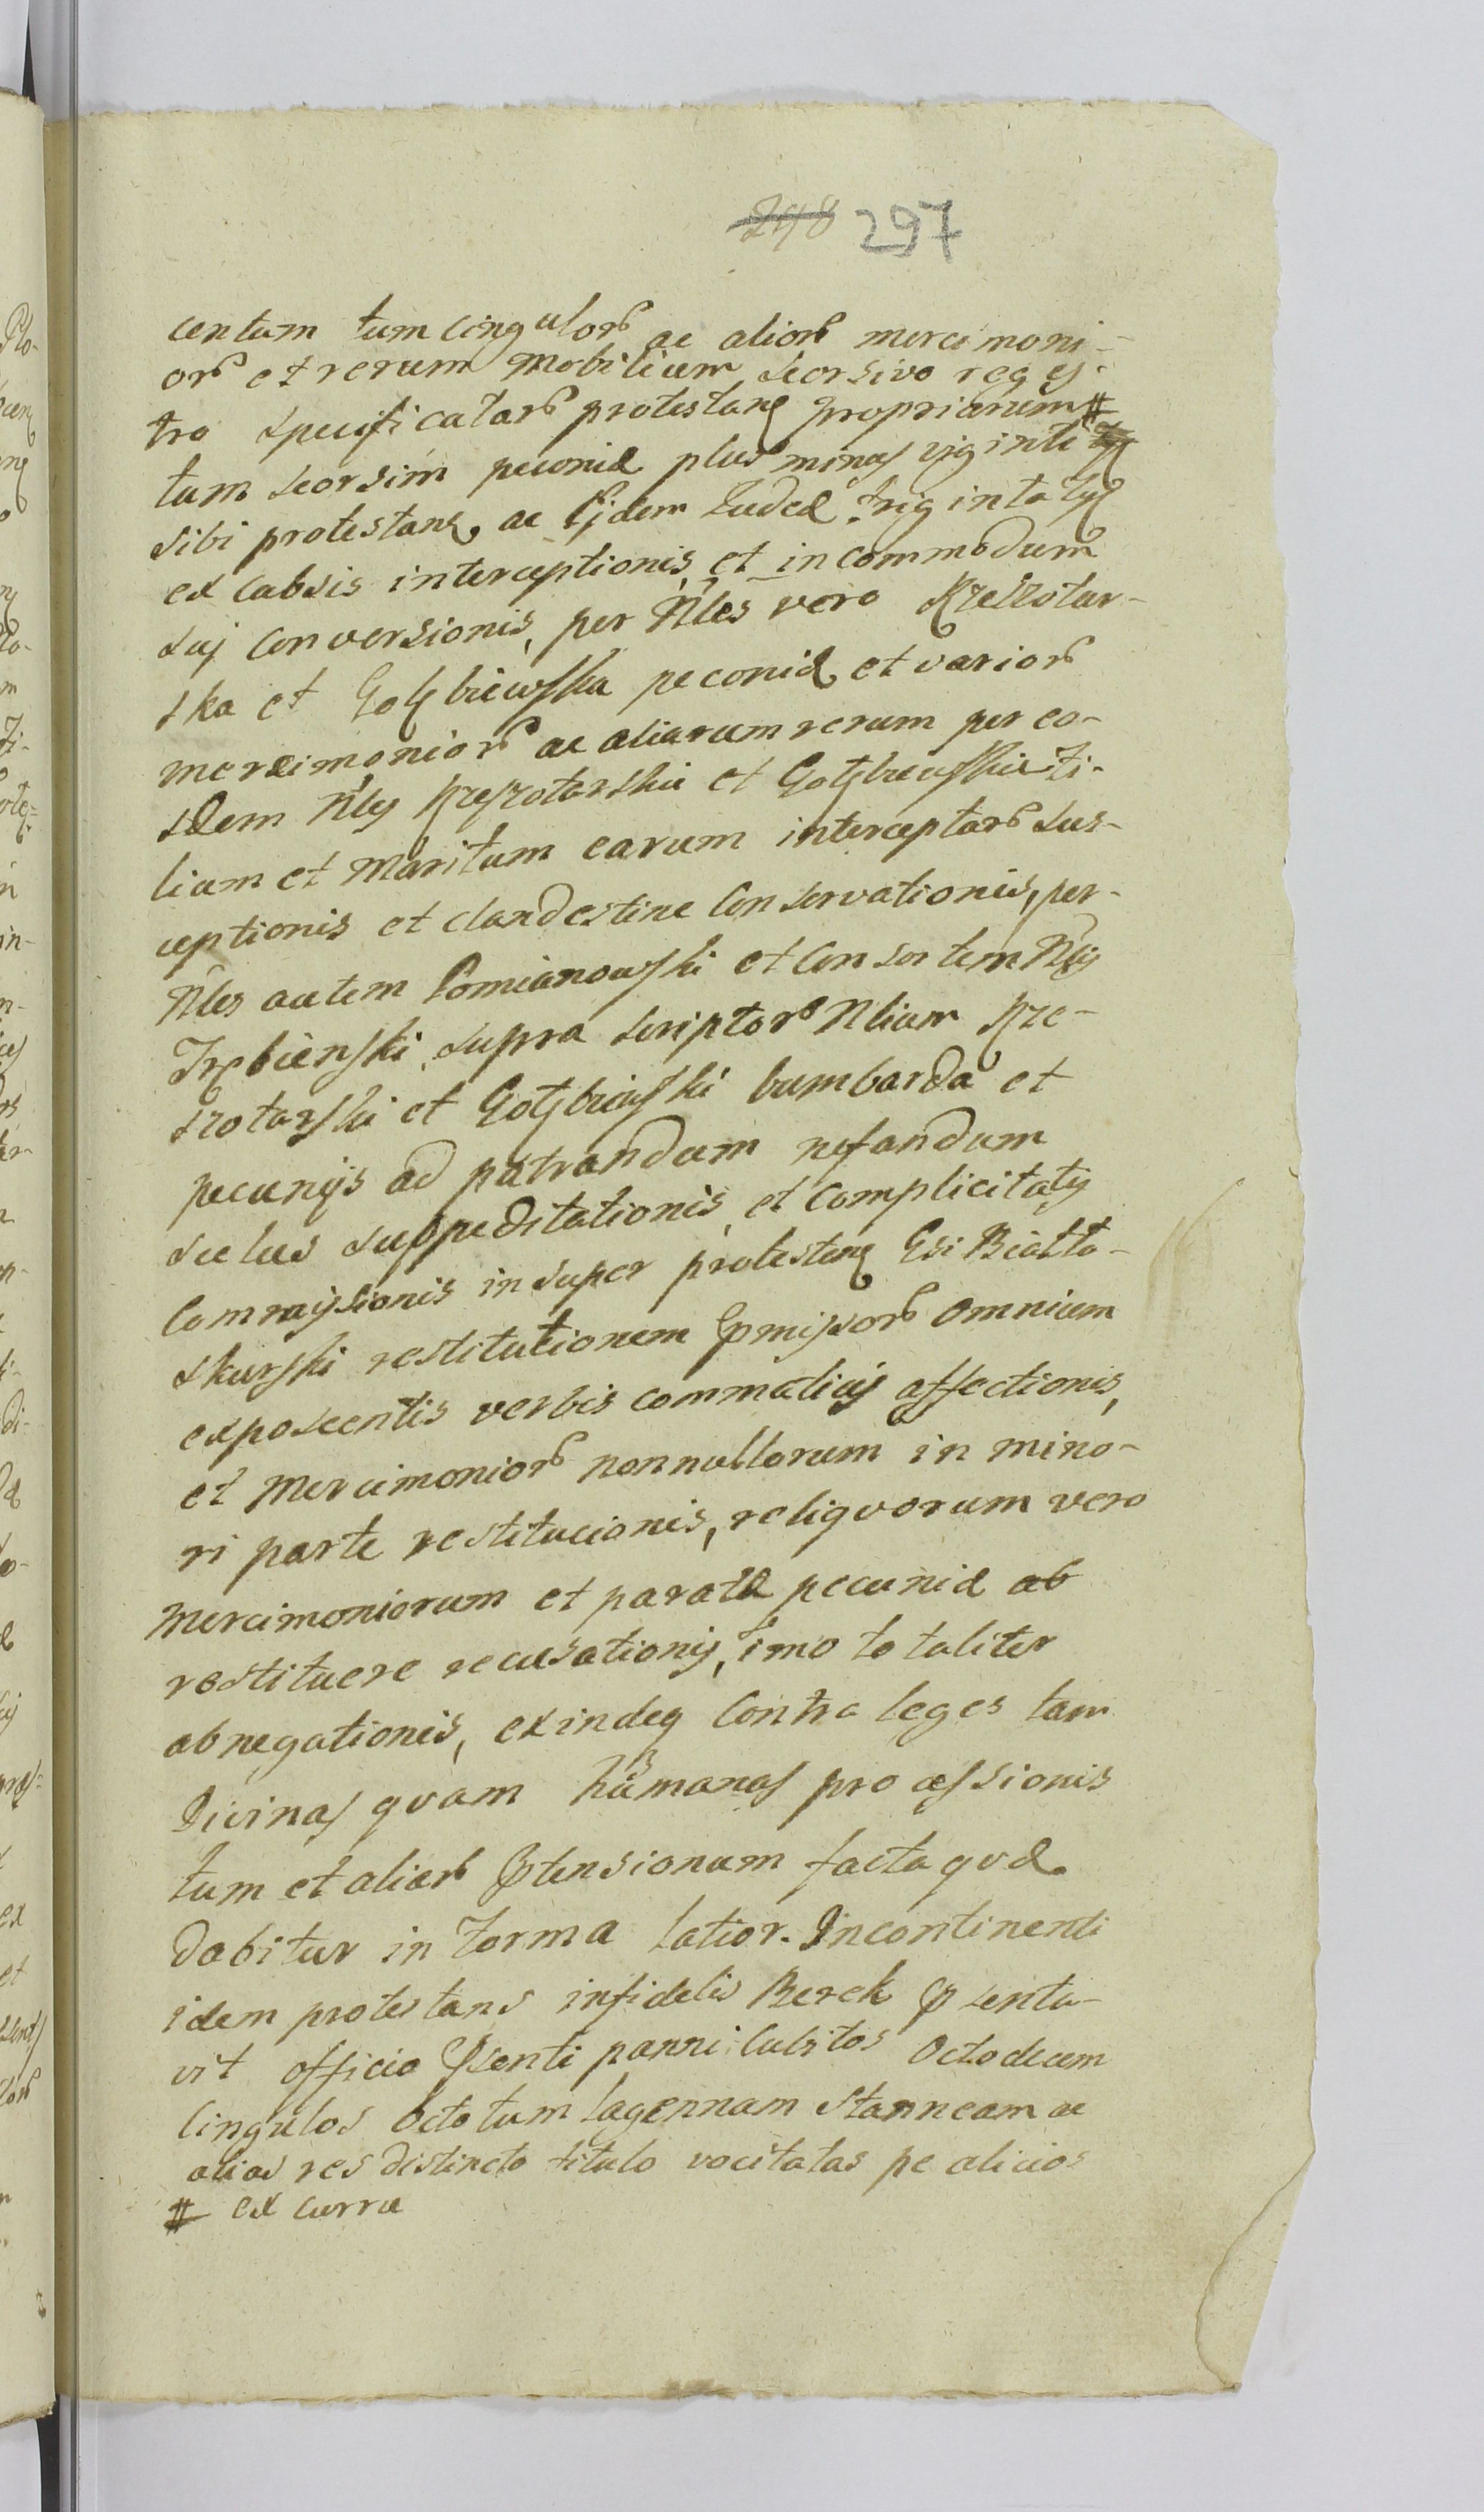 248 297
centum tum cingulor ac alior mercimoni-
or et rerum Mobilium seorsivo reges-
tro specificatar protestanς propriarum #
tum seorsim peconiæ plus minus viginti
sibi protestanς ac Ejdem Judeæ triginta
ex cabsis interceptionis et in commodum
suj conversionis, per Nles vero Krzeszotar-
ska et Gołębiewska peconiæ et varior
mercimonior ac aliarum rerum per eo-
sdem Nles Krzeszotarskie et Gołębiewskie fi-
lium et Maritum earum interceptar sus-
ceptionis et clandestine Conservationis, per
Nles autem Pomianowski et Consortem Nlis
Trębienski supra scriptor Nlium Krze-
szotarski et Gołębiewski bumbarda et
pecunijs ad patrandum nefandum
scelus suppeditationis et Complicitatis
Commissionis insuper protestanς Gsi Białło-
skurski restitutionem pmissor omnium
exposcentis verbis commaticis affectionis,
et Mercimonior nonnullorum in mino-
ri parte restitucionis, reliqvorum vero
Mercimoniorum et paratæ pecuniæ ab
restituere recusationis, imo totaliter
abnegationis, exindeq Contra leges tam
Divinas qvam humanas processionis
tum et alior ptensionum facta qvæ
Dabitur in Forma latior. Incontinenti
idem protestans infidelis Berek psenta-
vit officio psenti panni Cubitos Octodecem
Cingulos Octo tum lagennam Stanneam ac
alias res distincto titulo vocitatas pe alicios
# ex curru